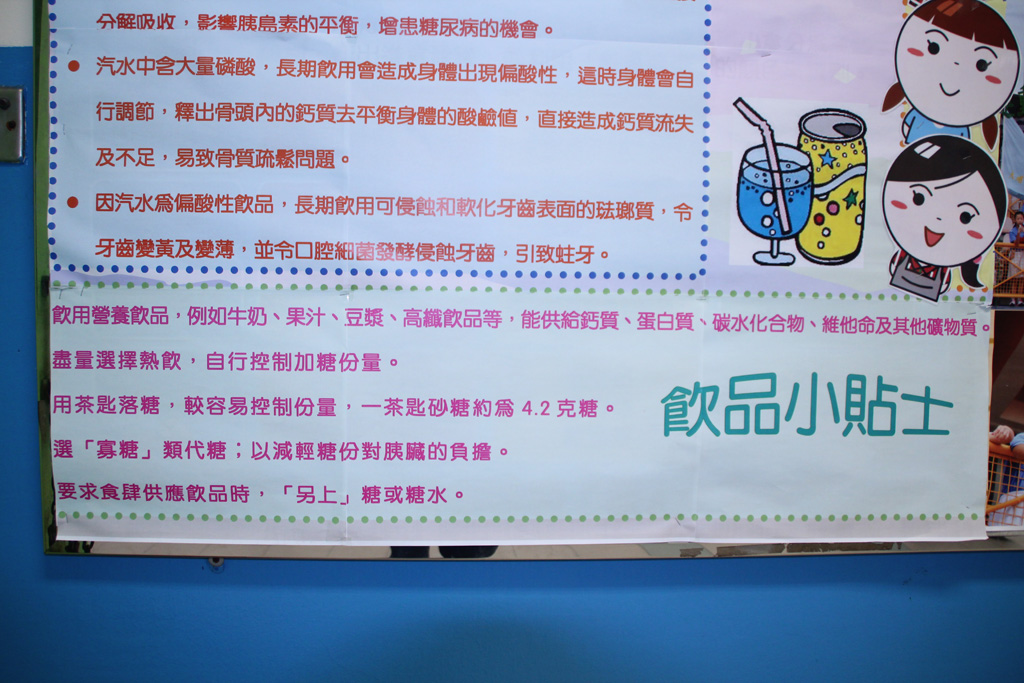 分解吸收，影響胰島素的平衡，增患糖尿病的機會。
● 汽水中含大量磷酸，長期飲用會造成身體出現偏酸性，這時身體會自
行調節，釋出骨頭內的鈣質去平衡身體的酸鹼值，直接造成鈣質流失
及不足，易致骨質疏鬆問題。
● 因汽水為偏酸性飲品，長期飲用可侵蝕和軟化牙齒表面的琺瑯質，令
牙齒變黃及變薄，並令口腔細菌發酵侵蝕牙齒，引致蛀牙。
飲用營養飲品，例如牛奶、果汁、豆漿、高纖飲品等，能供給鈣質、蛋白質、碳水化合物、維他命及其他礦物質。
盡量選擇熱飲，自行控制加糖份量。
用茶匙落糖，較容易控制份量，一茶匙砂糖約為 4.2 克糖。
選「寡糖」類代糖；以減輕糖份對胰臟的負擔。
要求食肆供應飲品時，「另上」糖或糖水。
飲品小貼士